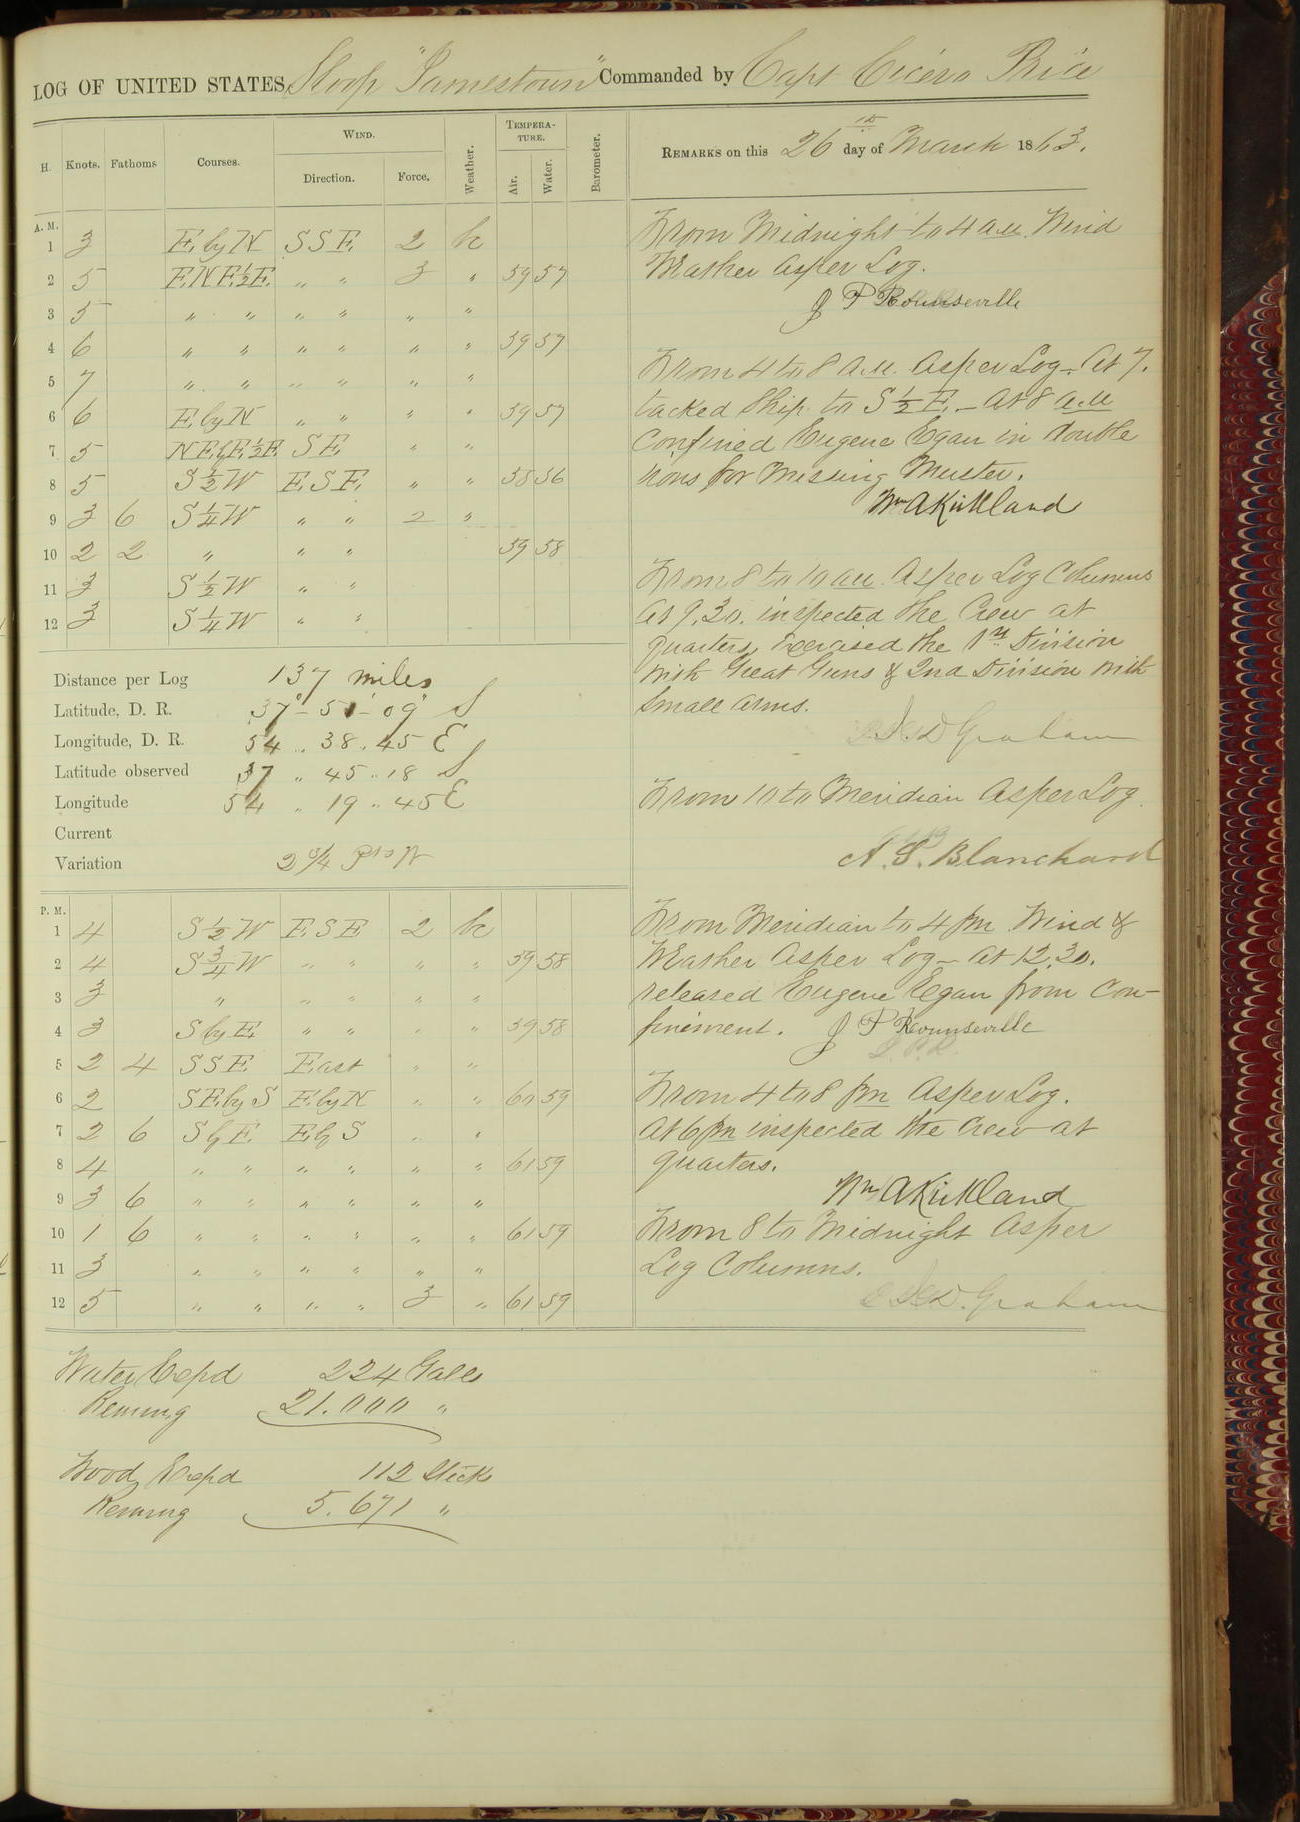 LOG OF UNITED STATES Sloop "Jamestown" Commanded by Capt Cicero Price
H. Knots. Fathoms Courses. WIND. Direction. Force. Weather. TEMPERATURE. Air. Water. Barometer.
REMARKS on this 26th day of March 1863.
A. M.
1 3 E. by N SSE. 2 bc
2 5 ENE½E. " " 3 " 59 57
3 5 " " " " " "
4 6 " " " " " " 59 57
5 7 " " " " " "
6 6 E. by N " " " " 59 57
7 5 NEbyE½E SE. " "
8 5 S½W ESE. " " 58 56
9 3 6 S¼W " " 2 "
10 2 2 " " " 59 58
11 3 S½W " "
12 3 S¼W " "
From Midnight to 4 a.m. Wind
Weather as per Log.
J P Rounseville
From 4 to 8 A.M. As per Log – At 7.
tacked Ship to S½E. – At 8 a.m.
Confined Eugene Egan in double
irons for missing Muster.
Wm A Kirkland
From 8 to 10 a.m. As per Log Columns
At 9.30. inspected the Crew at
quarters, Exercised the 1st Division
with Great Guns & 2nd Division with
Small arms.
J. D Graham
From 10 to Meridian As per Log.
A. S. Blanchard
Distance per Log 137 miles
Latitude, D. R. 37°–51'–09" S
Longitude, D. R. 54 " 38 " 45 E
Latitude observed 37 " 45 " 18 S
Longitude 54 " 19 " 45 E
Current
Variation 2¾ Pts W
P. M.
1 4 S½W ESE 2 bc
2 4 S¾W " " " " 59 58
3 3 " " " " "
4 3 S by E. " " " " 59 58
5 2 4 SSE East " "
6 2 SE by S E. by N " " 60 59
7 2 6 S by E. E by S " "
8 4 " " " " " " 61 59
9 3 6 " " " " " "
10 1 6 " " " " " " 61 59
11 3 " " " " " "
12 5 " " " " 3 " 61 59
From Meridian to 4 pm Wind &
Weather as per Log – At 12.30.
released Eugene Egan from Con-
finement. J P Rounseville
From 4 to 8 pm As per Log.
At 6 pm inspected the Crew at
quarters.
Wm A Kirkland
From 8 to Midnight As per
Log Columns.
J. D. Graham
Water Expd 224 Galls
Remng 21.000 "
Wood Expd 112 Sticks
Remng 5.671 "